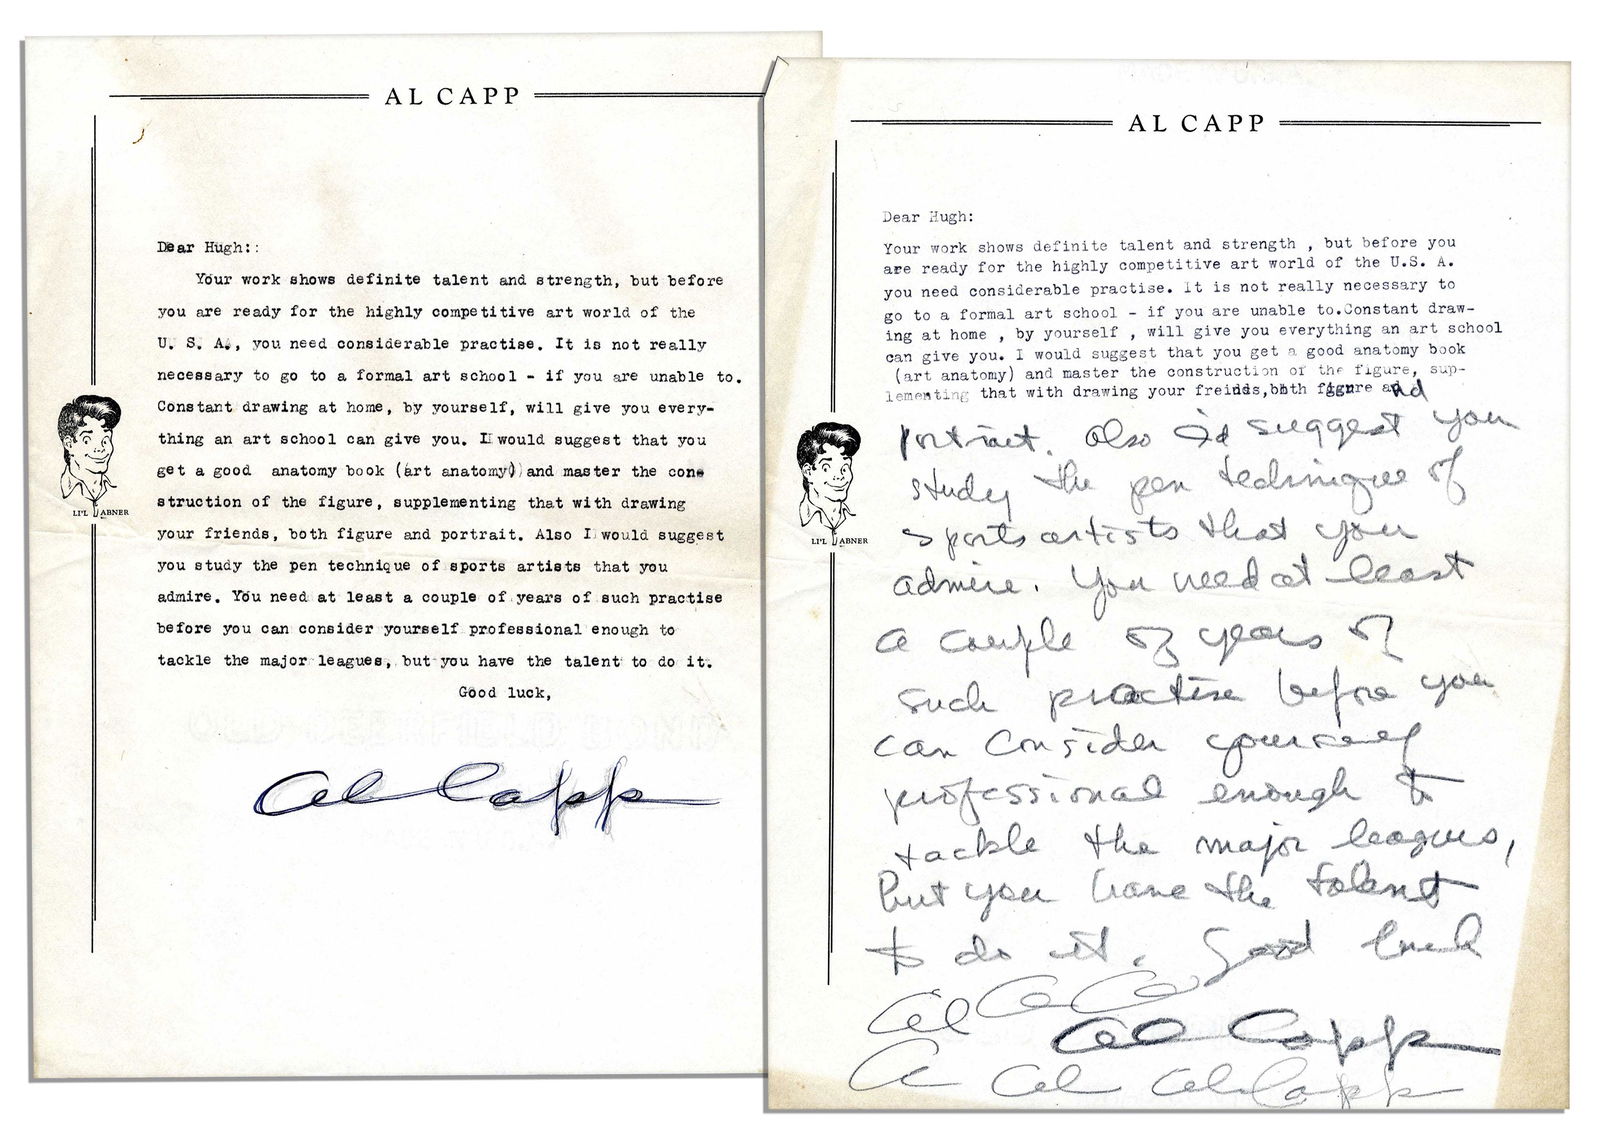 AL CAPP
Dear Hugh::
Your work shows definite talent and strength, but before
you are ready for the highly competitive art world of the
U. S. A., you need considerable practise. It is not really
necessary to go to a formal art school - if you are unable to.
Constant drawing at home, by yourself, will give you every-
thing an art school can give you. I would suggest that you
get a good anatomy book (art anatomy) and master the con-
struction of the figure, supplementing that with drawing
your friends, both figure and portrait. Also I would suggest
you study the pen technique of sports artists that you
admire. You need at least a couple of years of such practise
before you can consider yourself professional enough to
tackle the major leagues, but you have the talent to do it.
Good luck,
Al Capp
LI'L ABNER
AL CAPP
Dear Hugh:
Your work shows definite talent and strength , but before you
are ready for the highly competitive art world of the U.S. A.
you need considerable practise. It is not really necessary to
go to a formal art school - if you are unable to.Constant draw-
ing at home , by yourself , will give you everything an art school
can give you. I would suggest that you get a good anatomy book
(art anatomy) and master the construction of the figure, sup-
lementing that with drawing your freinds,both figure and
portrait. Also I'd suggest you
study the pen technique of
sports artists that you
admire. You need at least
a couple of years of
such practise before you
can consider yourself
professional enough to
tackle the major leagues,
but you have the talent
to do it. Good luck
Al Ca Ca
Al Capp
A Al Al Capp
LI'L ABNER